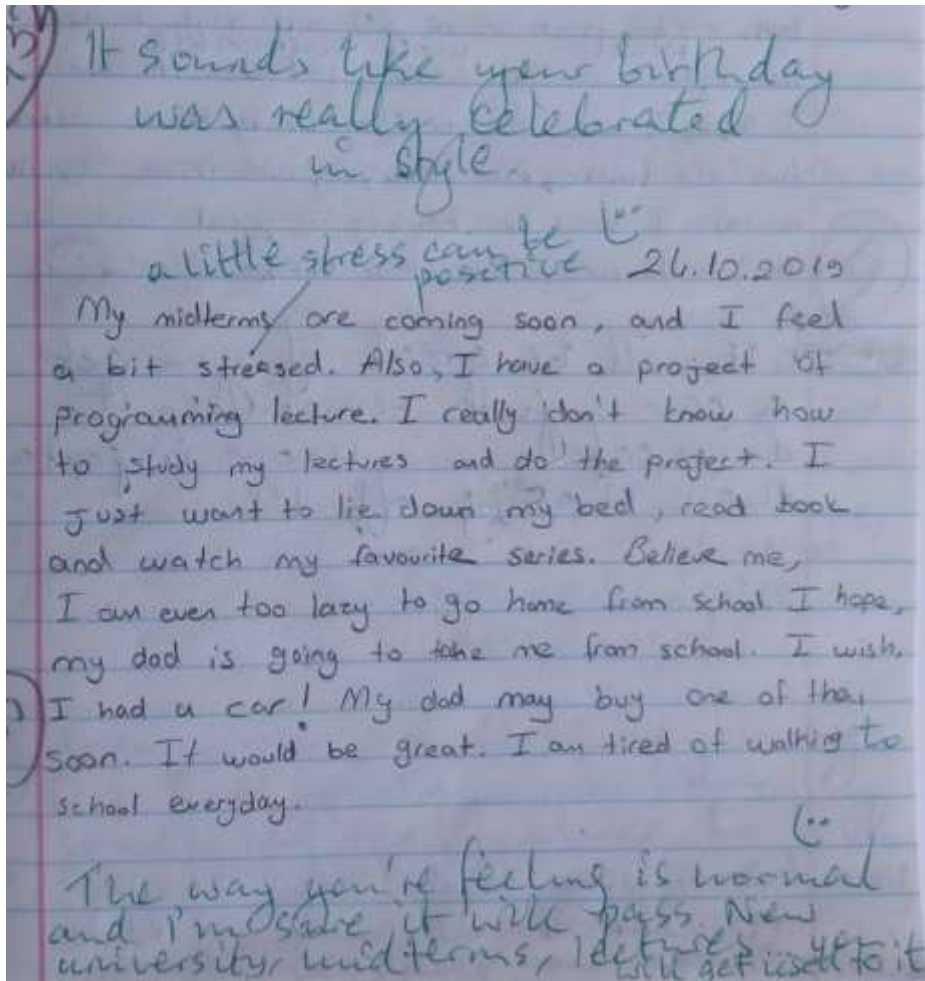 It sounds like your birthday
was really celebrated
in style.
a little stress can be
positive
24.10.2019
My midterms are coming soon, and I feel
a bit stressed. Also, I have a project of
programming lecture. I really don't know how
to study my lectures and do the project. I
just want to lie down my bed, read book
and watch my favourite series. Believe me,
I am even too lazy to go home from school I hope,
my dad is going to take me from school. I wish,
I had a car! My dad may buy one of
soon. It would be great. I am tired of walking to
school everyday.
The way you're feeling is normal
and I'm sure it will pass New
university, midterms, lectures you
will get used to it